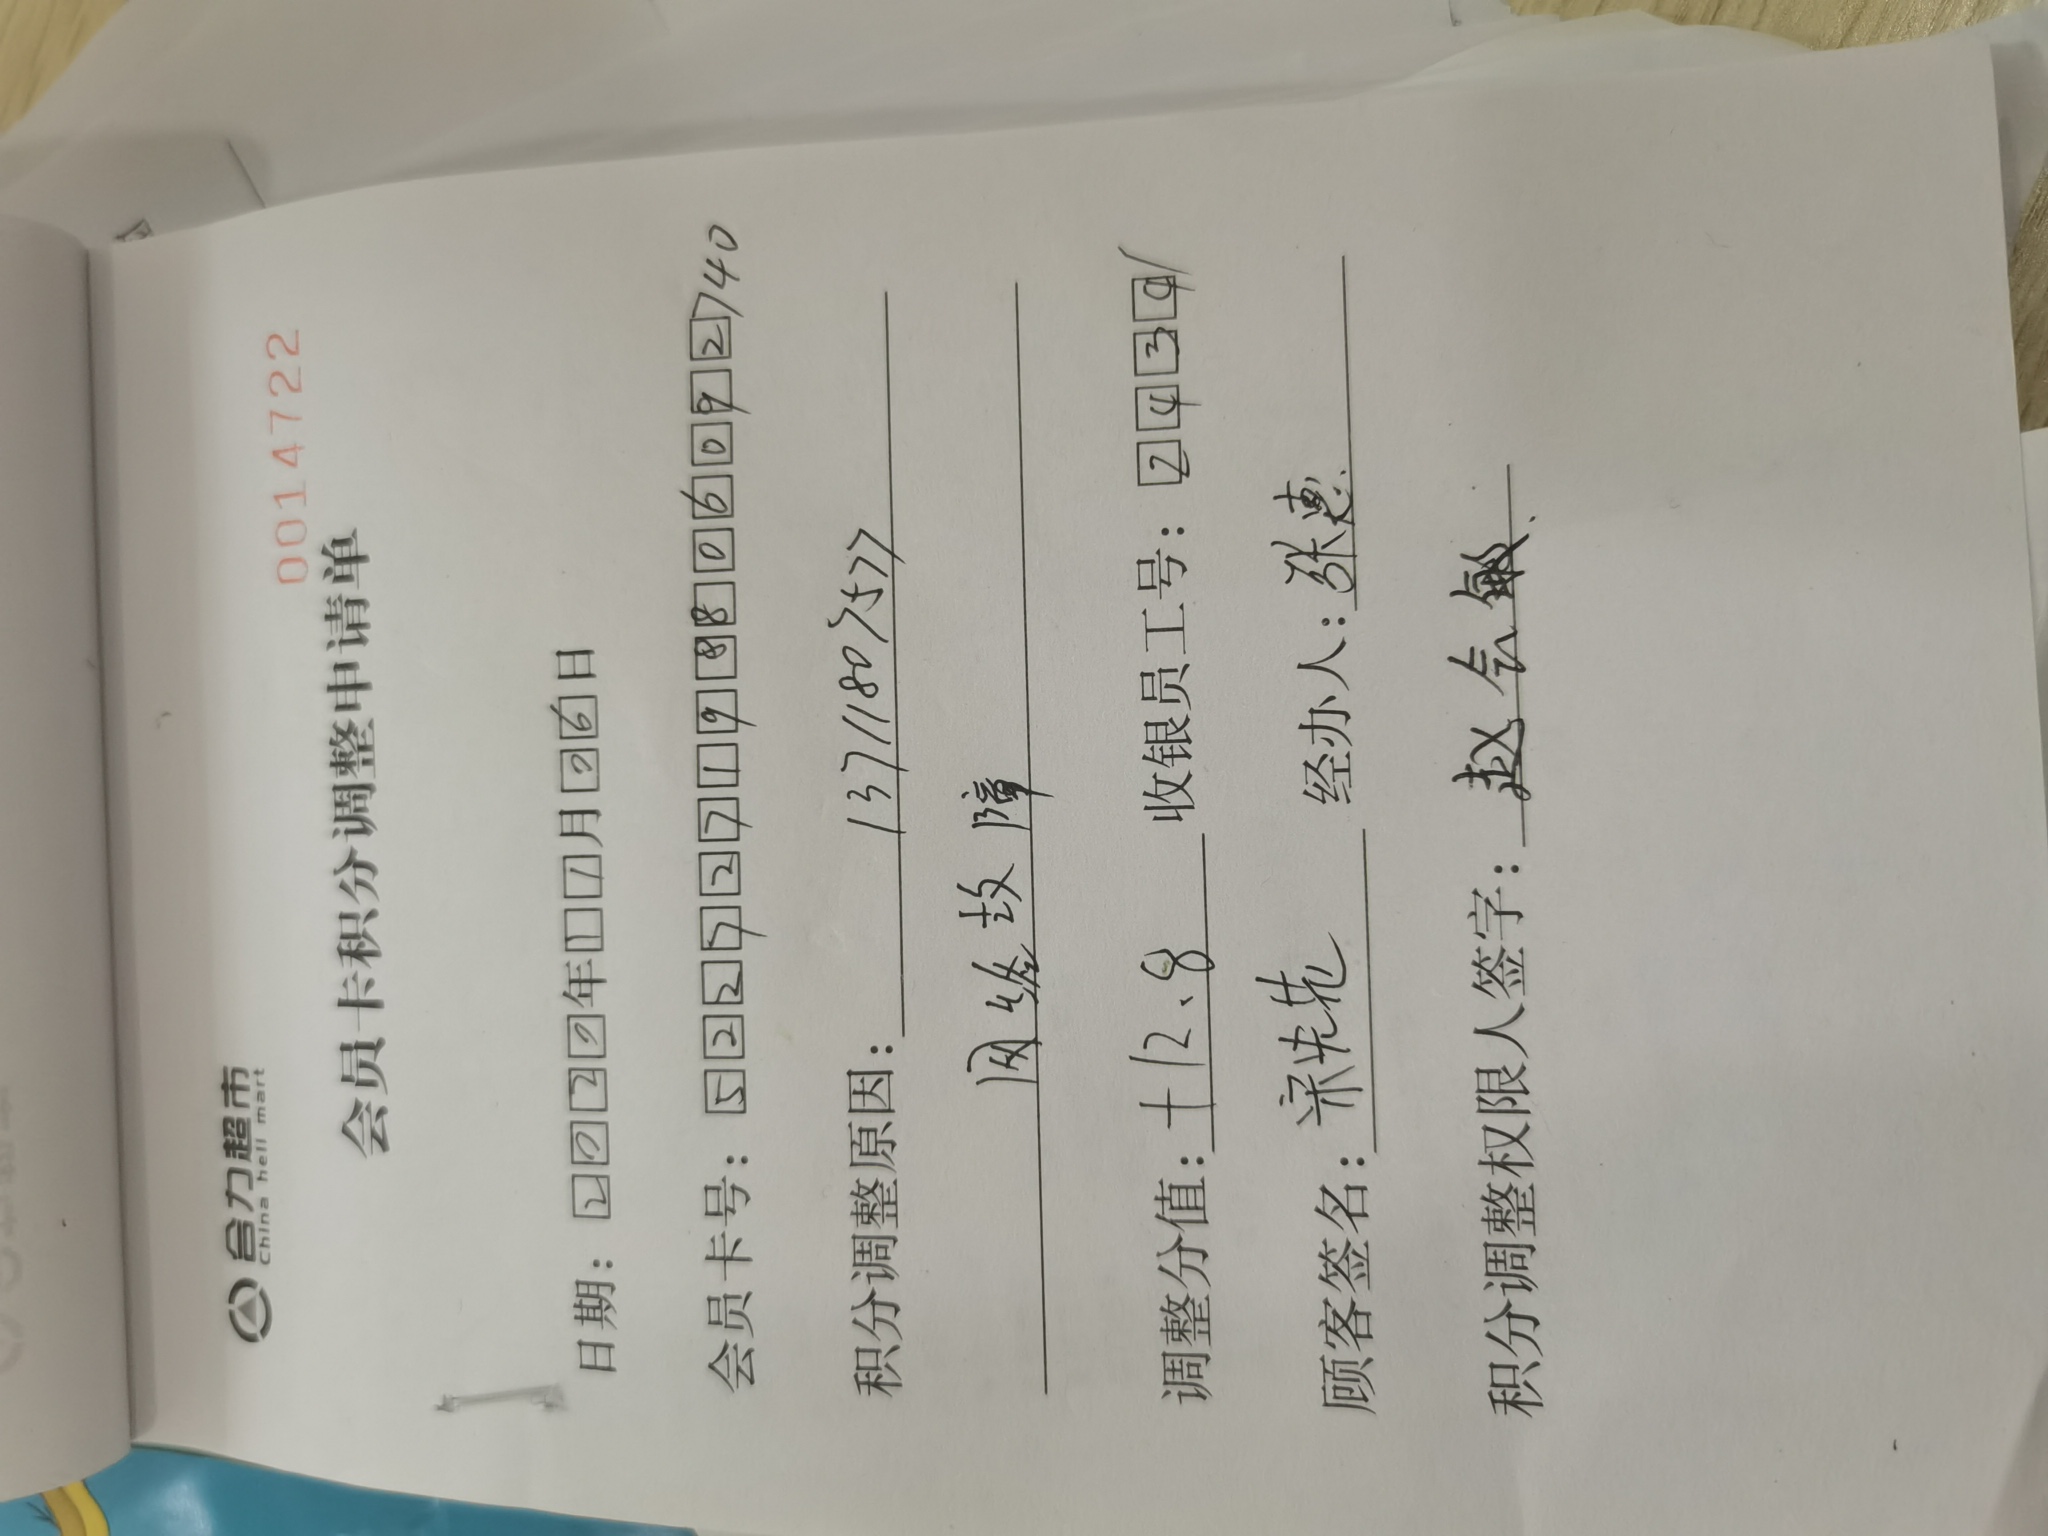 合力超市
China hell mart
0014722
会员卡积分调整申请单
日期：2020年11月06日
会员卡号：522727198806092740
积分调整原因：13711807577
网络故障
调整分值：+12.8 收银员工号：24391
顾客签名：宋先花 经办人：张惠
积分调整权限人签字：赵会敏